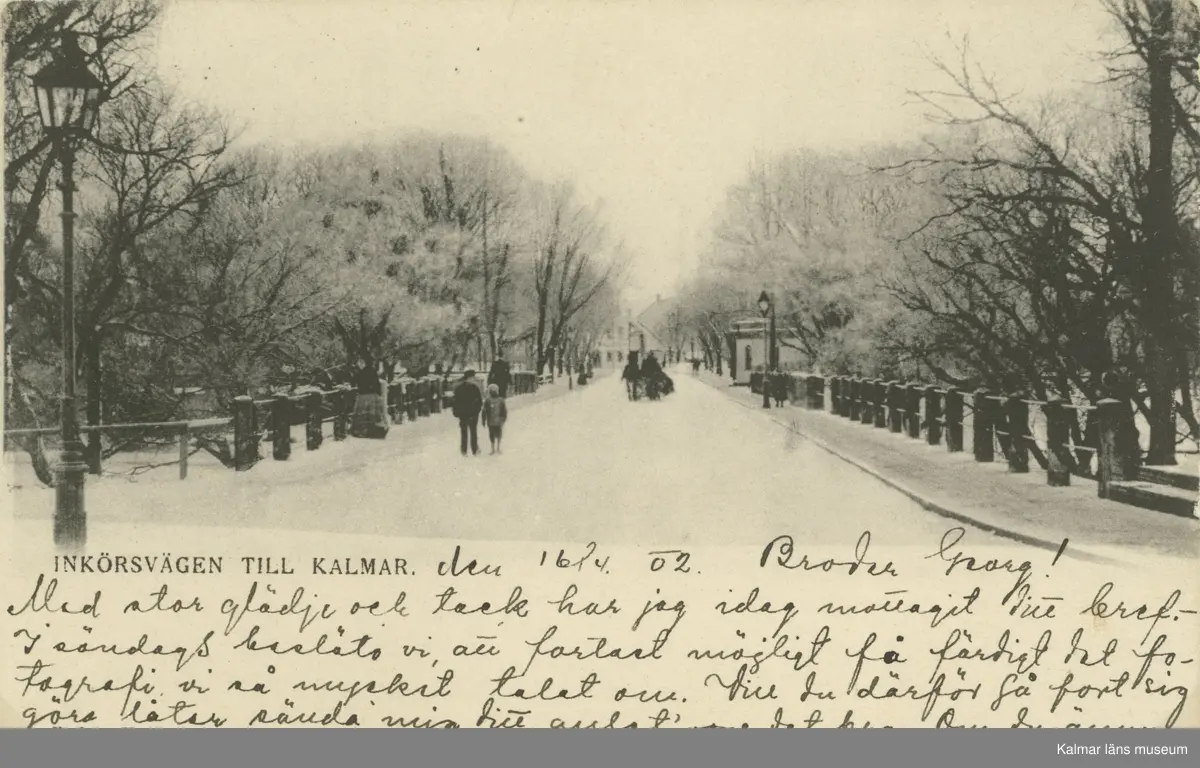 INKÖRSVÄGEN TILL KALMAR. den 16/4. 02. Broder Georg!
Med stor glädje och tack har jag idag mottagit ditt bref.-
I söndags beslöto vi, att fortast möjligt få färdigt det fo-
tografi, vi så mycket talat om. Vill du därför så fort sig
göra låter sända mig ditt det Om du
Kalmar läns museum